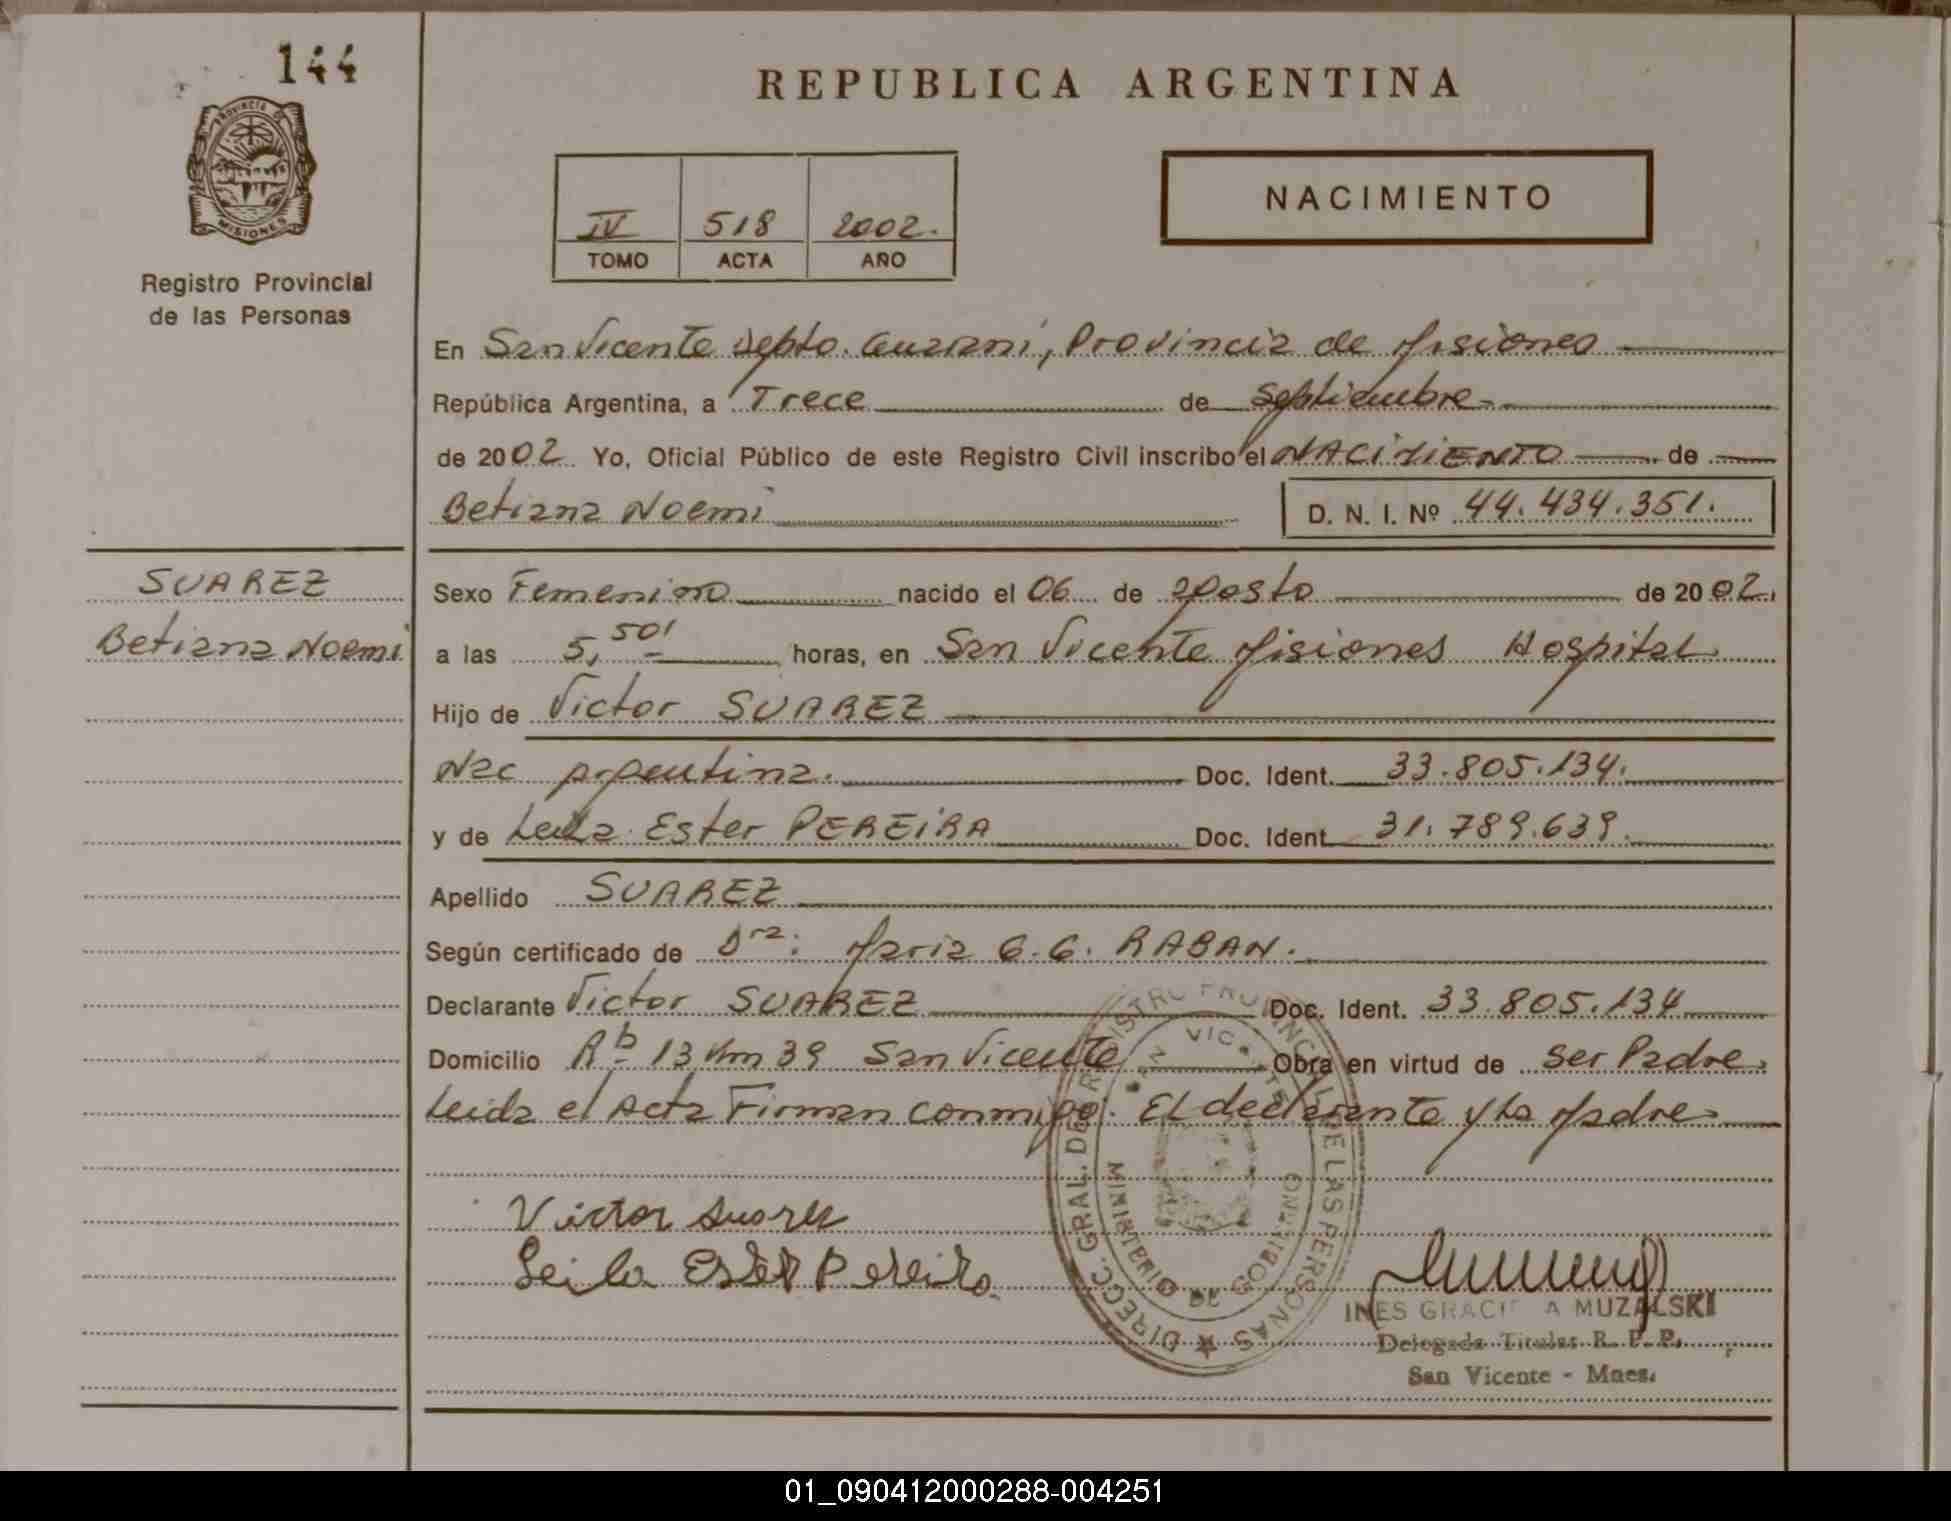 144
REPUBLICA ARGENTINA
PROVINCIA DE
MISIONES
Registro Provincial
de las Personas
IV 518 2002.
TOMO ACTA AÑO
NACIMIENTO
En San Vicente Depto. Guaraní, Provincia de Misiones
República Argentina, a Trece de Septiembre
de 2002. Yo, Oficial Público de este Registro Civil inscribo el NACIMIENTO de
Betiana Noemi D. N. I. Nº 44.434.351.
SUAREZ
Betiana Noemi
Sexo Femenino nacido el 06 de agosto de 2002.
a las 5,50' horas, en San Vicente Misiones Hospital
Hijo de Victor SUAREZ
Nac argentina. Doc. Ident. 33.805.134.
y de Leila Ester PEREIRA Doc. Ident. 31.789.639.
Apellido SUAREZ
Según certificado de Dra: Maria G.G. RABAN.
Declarante Victor SUAREZ Doc. Ident. 33.805.134
Domicilio Rb 13 Km 39 San Vicente Obra en virtud de ser Padre.
Leida el Acta Firman conmigo. El declarante y la Madre
DIRECC. GRAL. DE REGISTRO PROVINCIAL DE LAS PERSONAS
SAN VICENTE
MINISTERIO DE GOBIERNO
Victor Suarez
Leila Ester Pereira
INES GRACIELA MUZALSKI
Delegada Titular R. P. P.
San Vicente - Mnes.
01_090412000288-004251